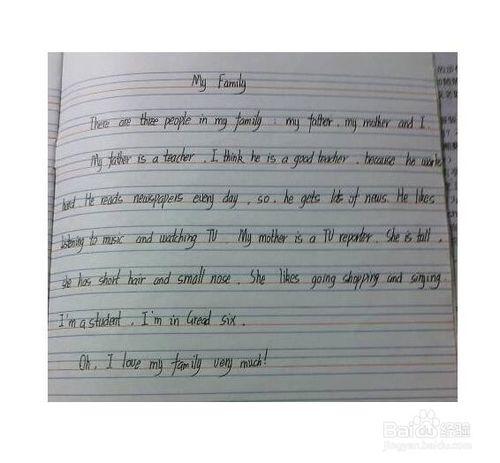 My Family
There are three people in my family : my father . my mother and I .
My father is a teacher . I think he is a good teacher . because he works
hard He reads newspapers every day . so . he gets lots of news. He likes
listening to music and watching TV . My mother is a TV reporter . She is tall .
she has short hair and small nose . She likes going shopping and singing
I'm a student . I'm in Gread six .
Oh . I love my family very much!
Baidu 经验
jingyan.baidu.com